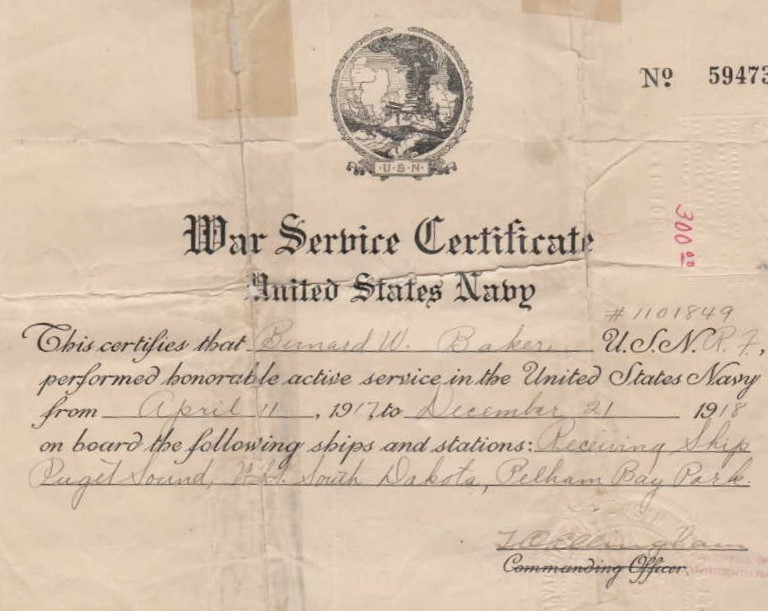 Nº 59473
·U·S·N·
300 00
War Service Certificate
United States Navy
# 1101849
This certifies that Bernard W. Baker, U.S.N.R.F.,
performed honorable active service in the United States Navy
from April 11, 1917, to December 21 1918
on board the following ships and stations: Receiving Ship
Puget Sound, U.S.S. South Dakota, Pelham Bay Park.
Commanding Officer.